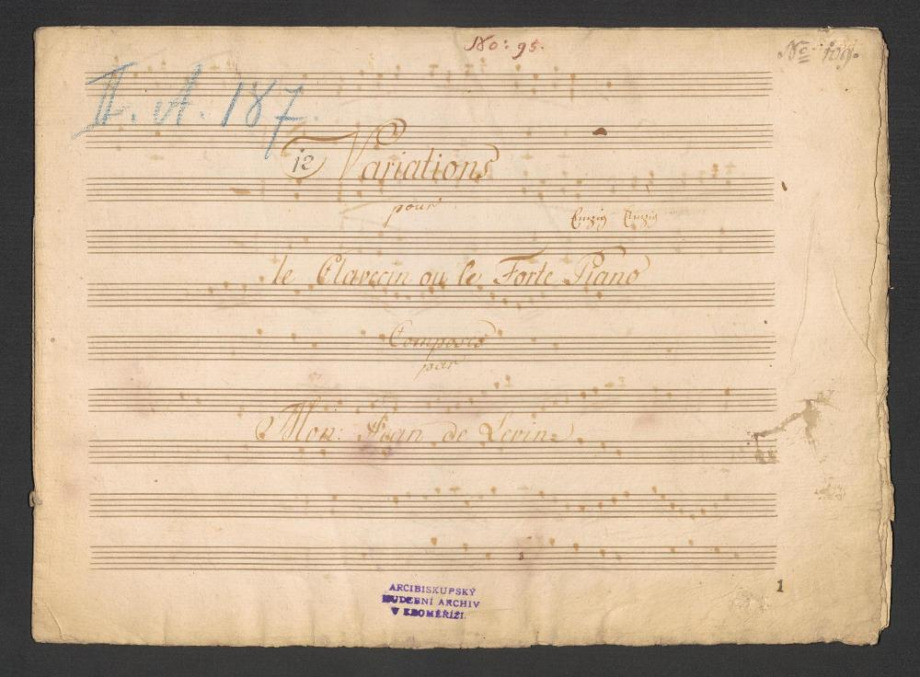 No: 95.
No 109.
II. A. 187
12 Variations
pour
le Clavecin ou le Forte Piano
Composés
par
Mon: Jean de Levin
ARCIBISKUPSKÝ
HUDEBNÍ ARCHIV
V KROMĚŘÍŽI.
1